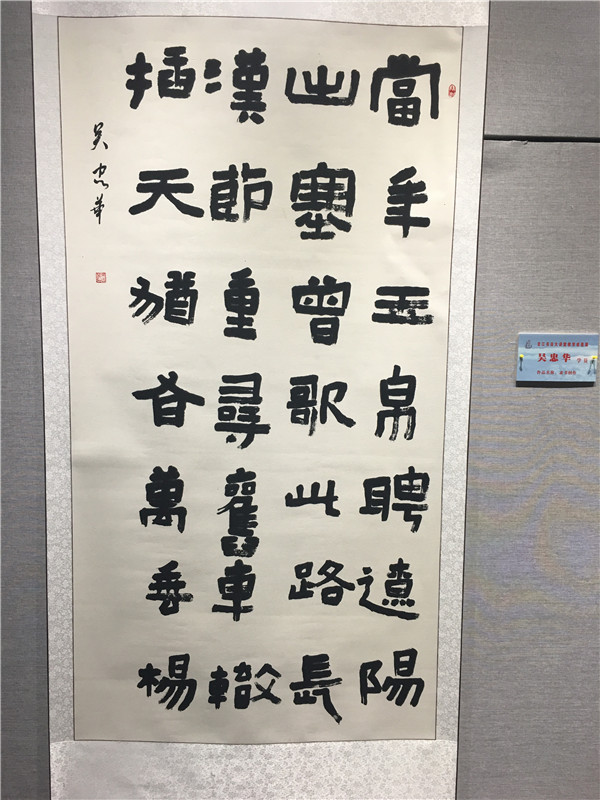 當年玉帛聘遼陽
出塞曾歌此路長
漢節重尋舊車轍
插天猶有萬垂楊
吴忠華
吴忠华